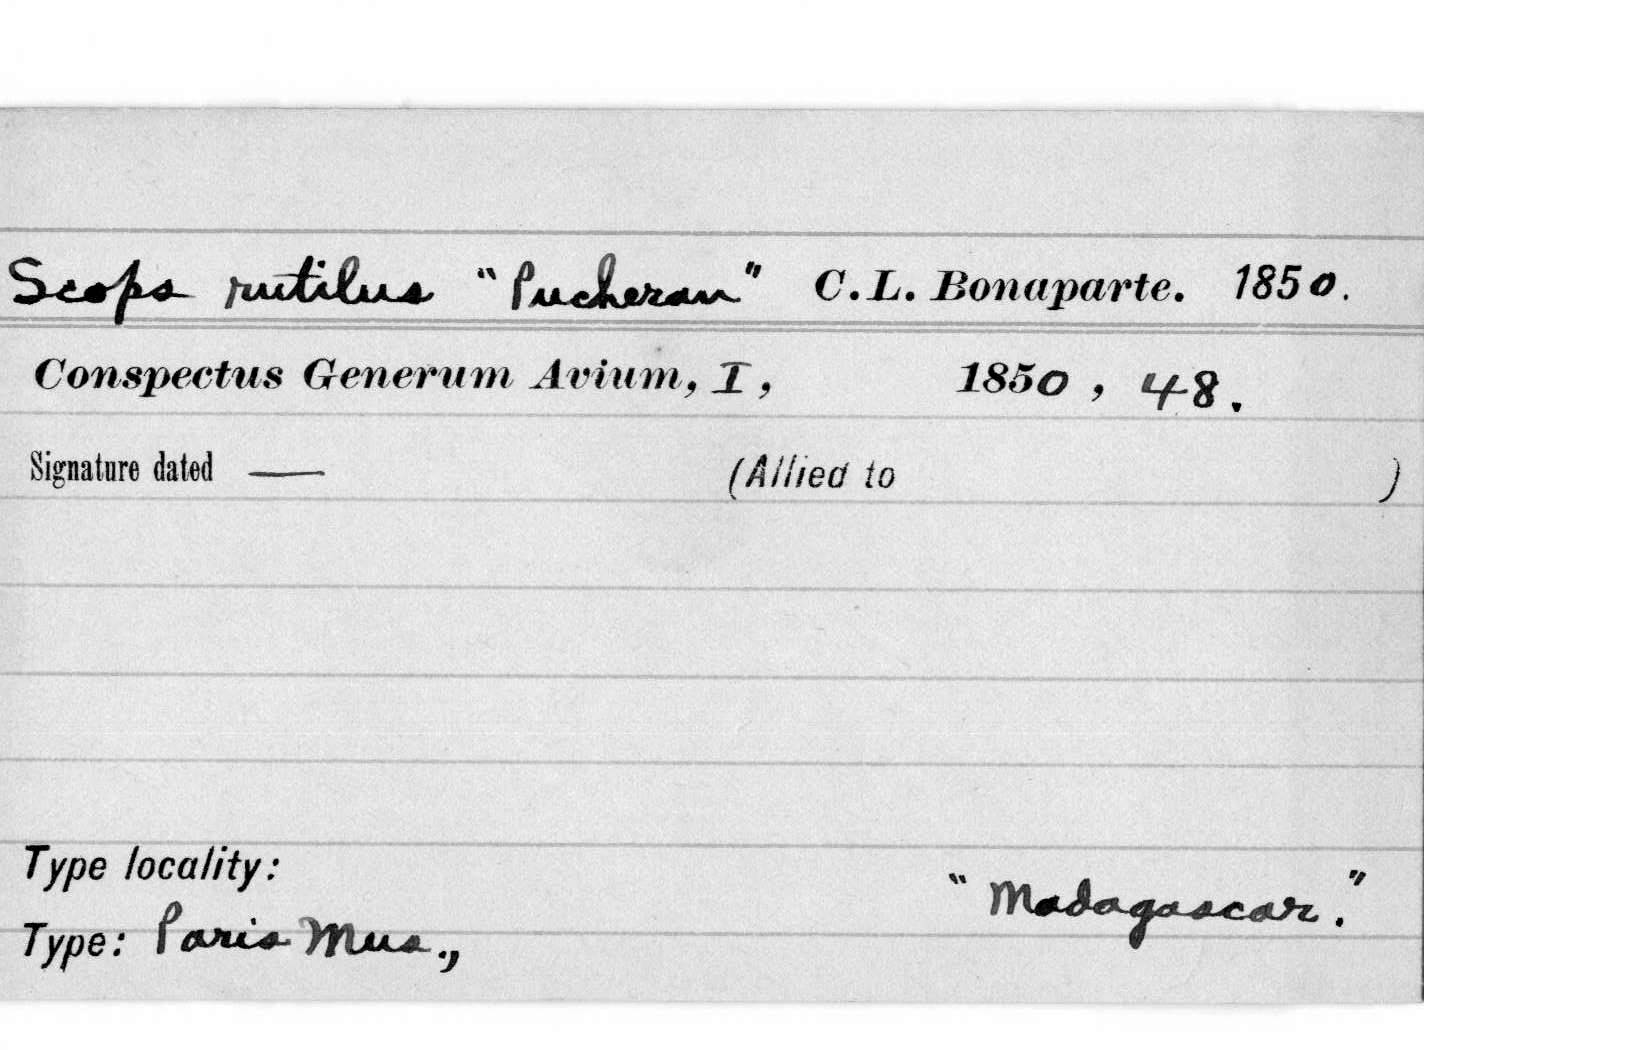 Scops rutilus "Pucheran" C. L. Bonaparte. 1850.
Conspectus Generum Avium, I, 1850, 48.
Signature dated — (Allied to )
Type locality:
"Madagascar."
Type: Paris Mus.,